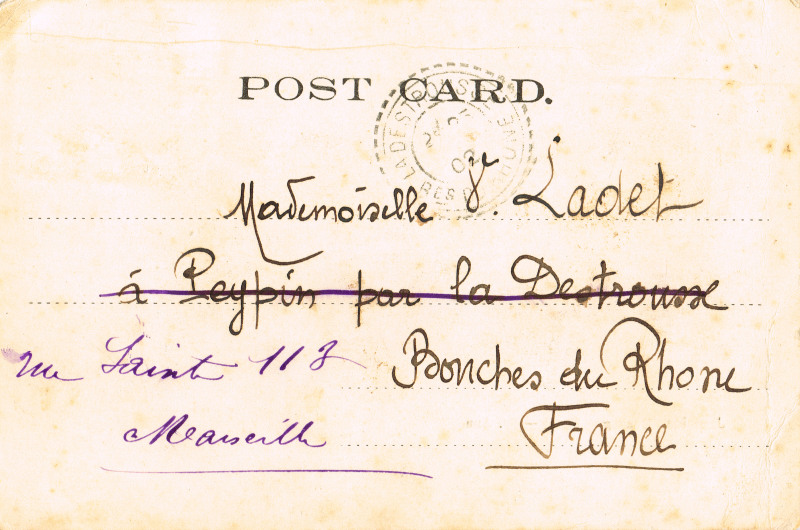 POST CARD.
LA DESTROUSSE
02
Mademoiselle V. Ladet
à Peypin par la Destrousse
rue Sainte 113 Bouches du Rhone
Marseille France